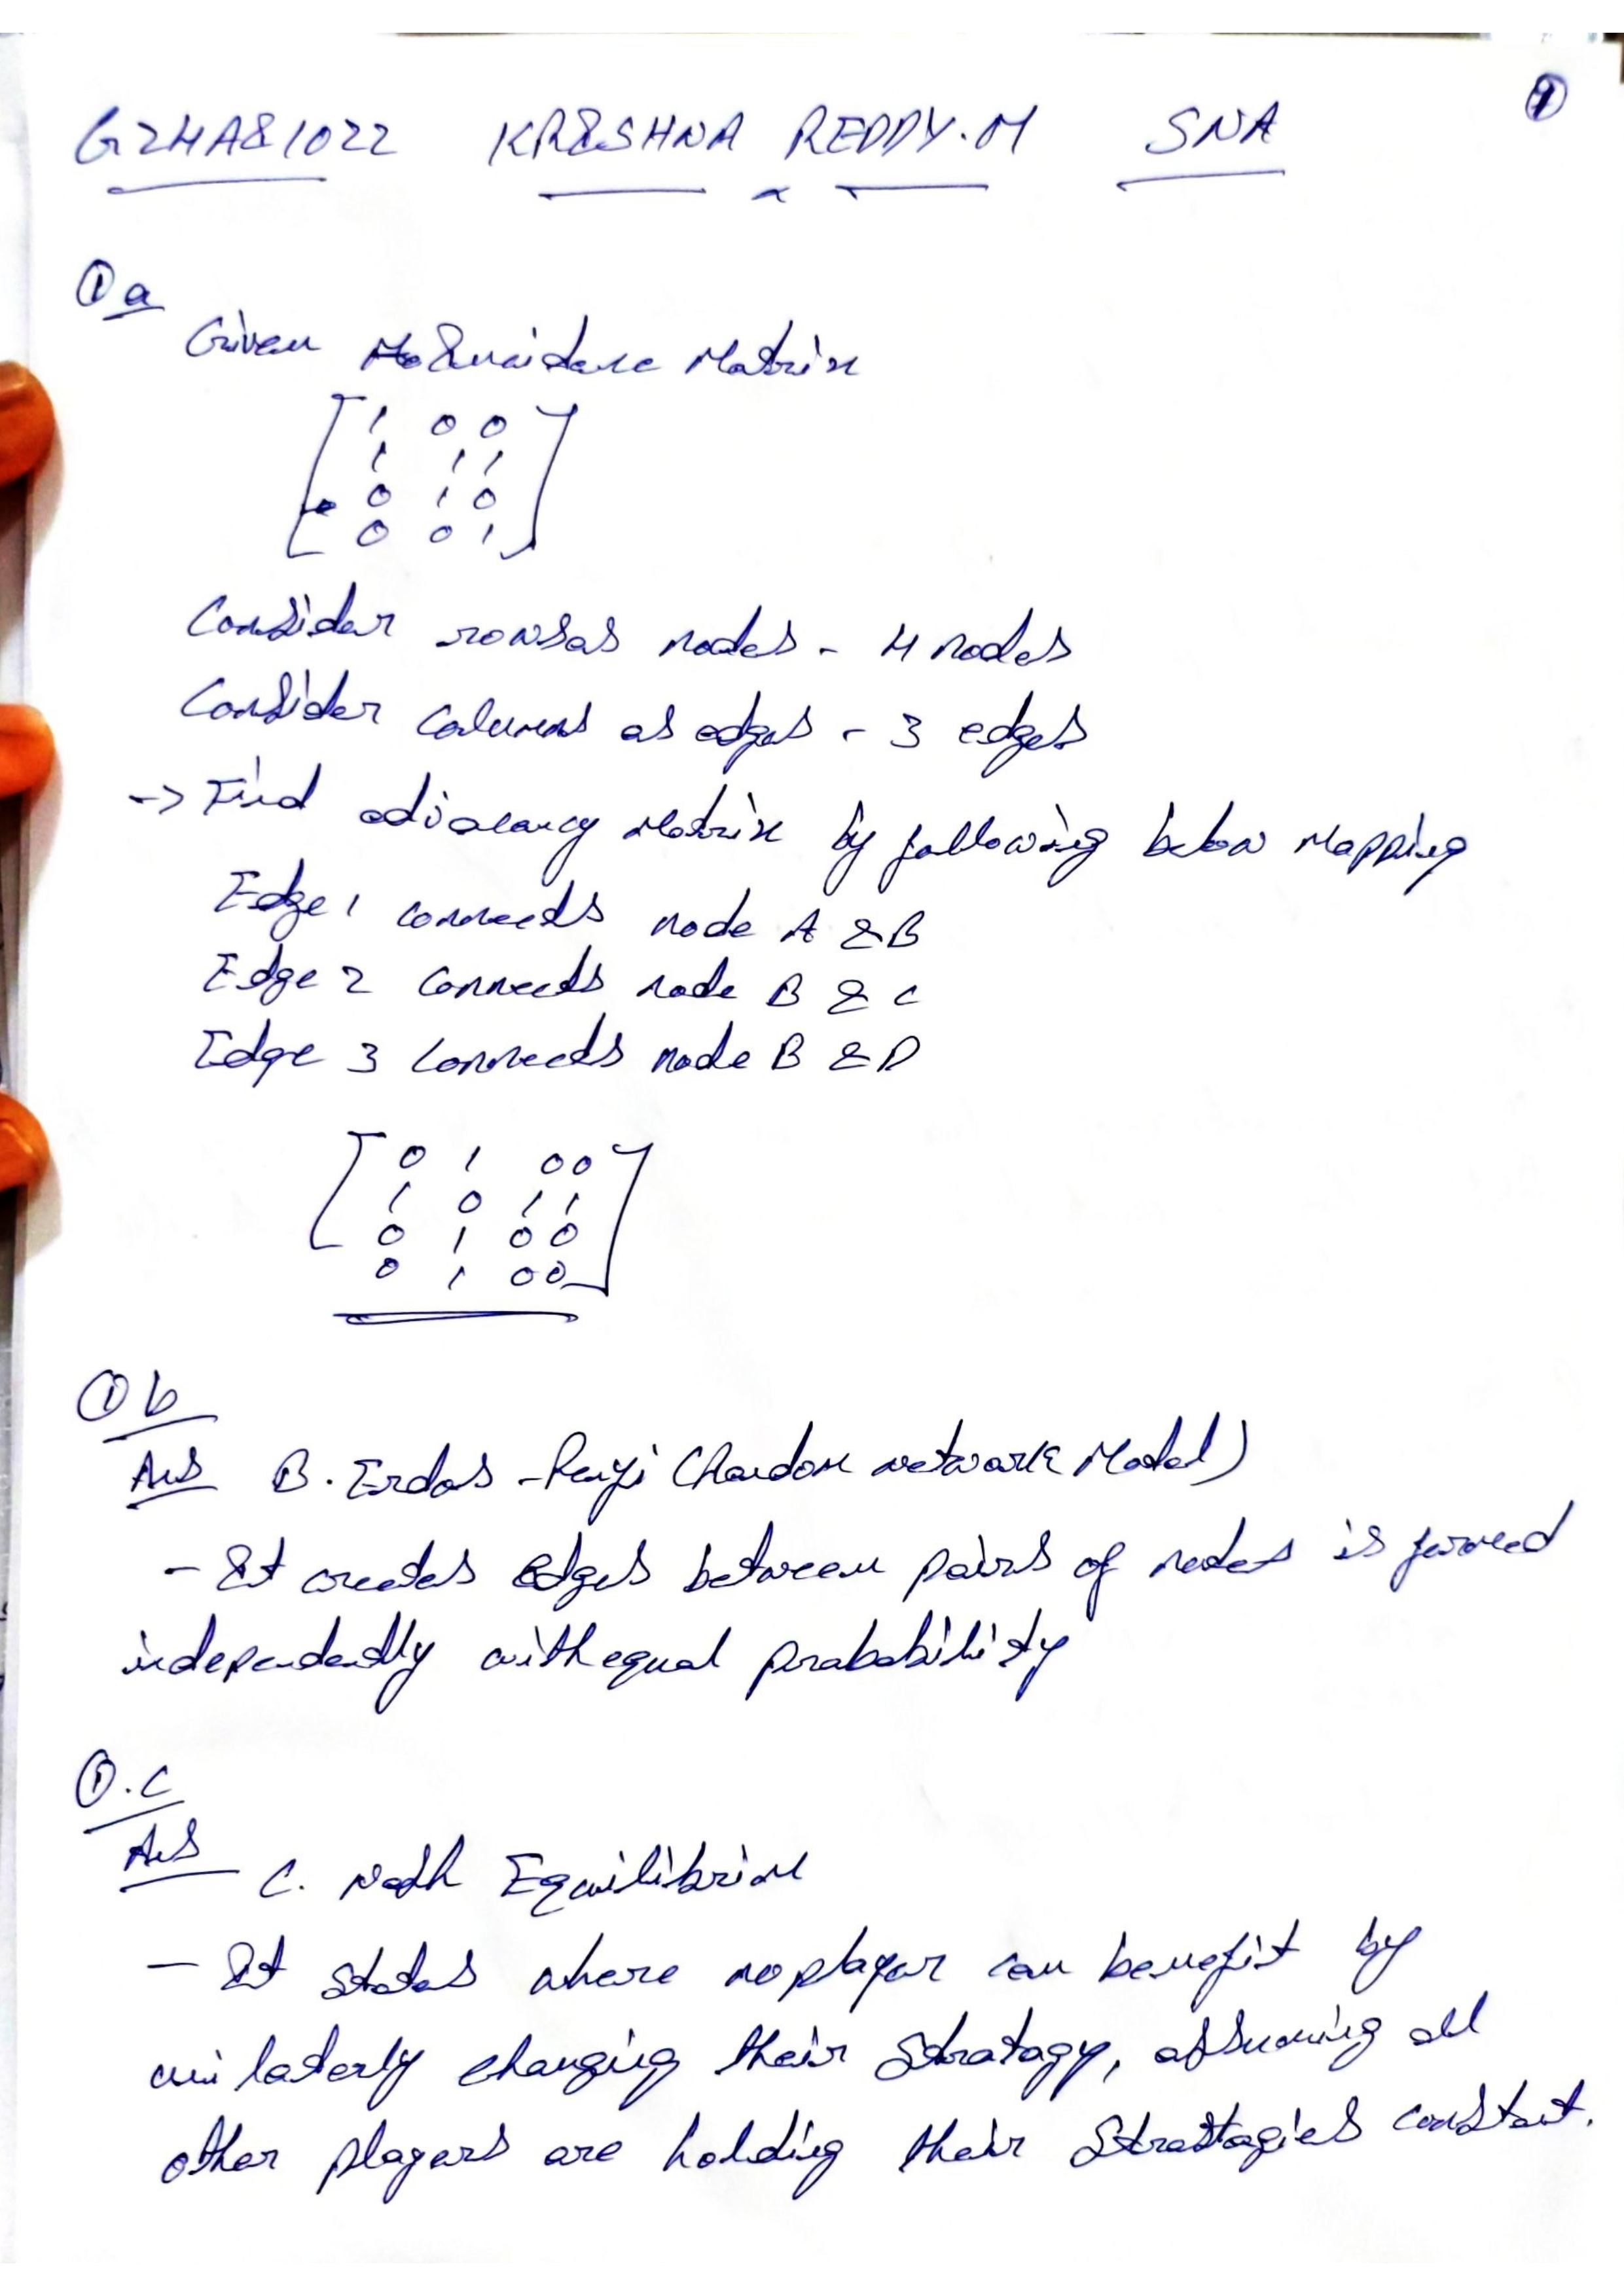 ①
G24A81022 KRISHNA REDDY.M SNA
① a
Given Incidence Matrix
1 0 0
1 1 1
0 1 0
0 0 1
Consider rows as nodes - 4 nodes
Consider Columns as edges - 3 edges
-> Find adjacency Matrix by following below Mapping
Edge 1 connects node A & B
Edge 2 connects node B & C
Edge 3 connects node B & D
0 1 0 0
1 0 1 1
0 1 0 0
0 1 0 0
① b
Ans B. Erdos - Renyi (Random network Model)
- It creates edges between pairs of nodes is formed
independently with equal probability
①. C
Ans C. Nash Equilibrium
- It states where no player can benefit by
unilaterly changing their Stratagy, assuming all
other players are holding their Stratagies constant.